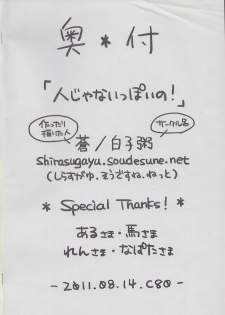 奥*付
「人じゃないっぽいの!」
作ったり描いた人
サークル名
蒼/白子粥
shirasugayu.soudesune.net
(しらすがゆ.そうですね.ねっと)
* Special Thanks! *
あるさま・馬さま
れんさま・なぱたさま
- 2011.08.14.C80 -